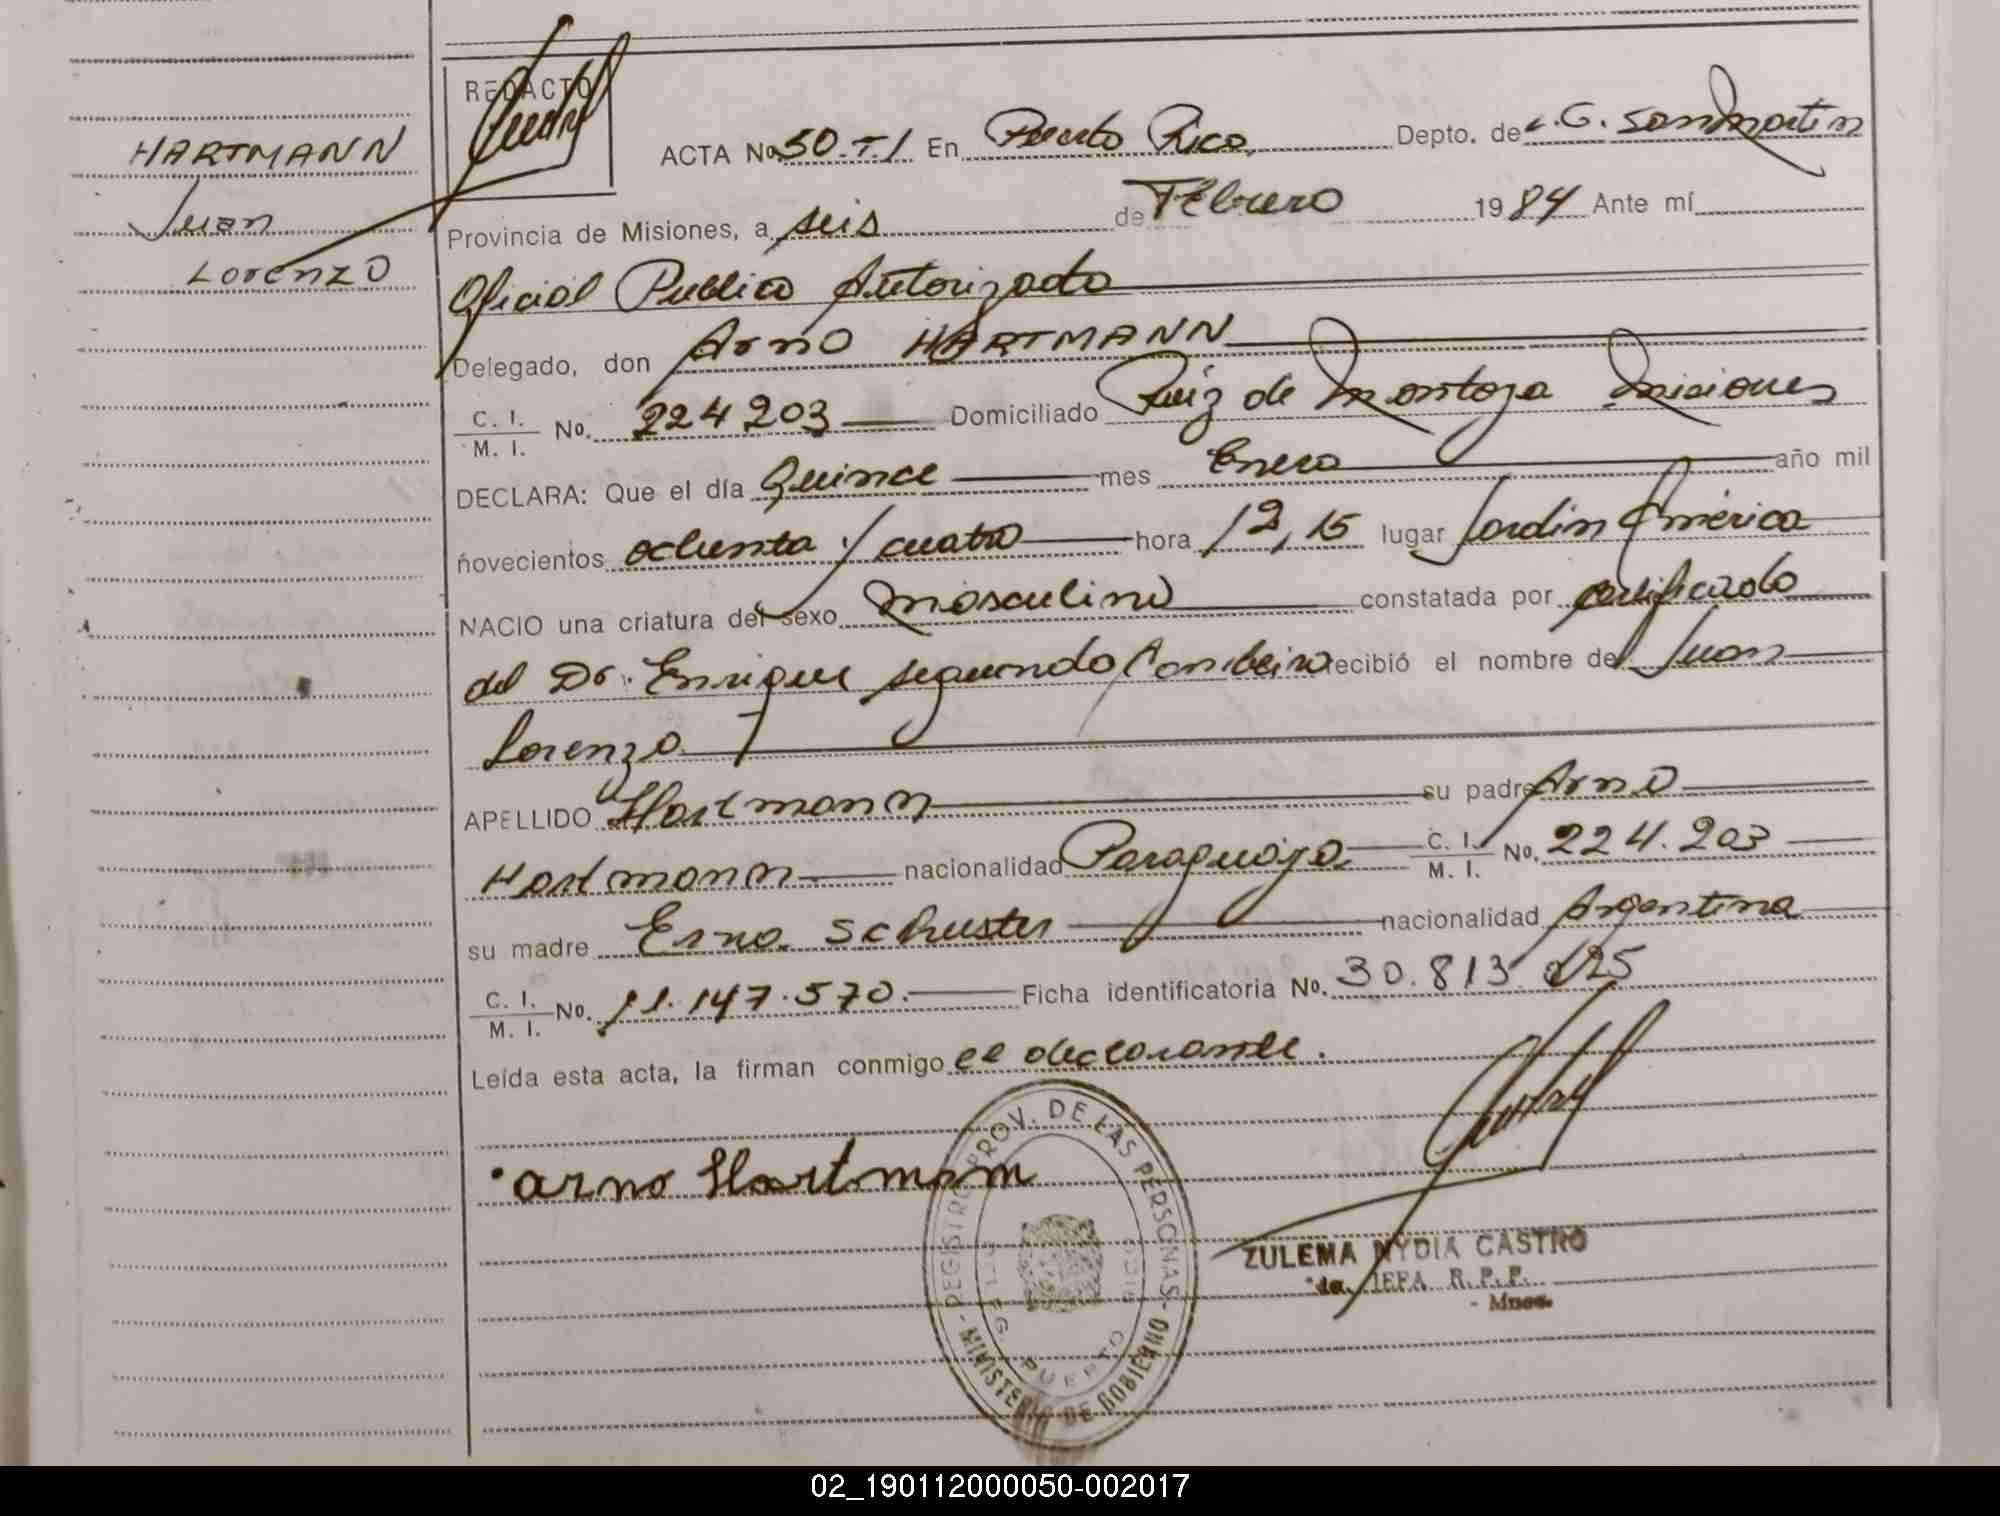 HARTMANN
Juan
Lorenzo
REDACTO
ACTA No 50.T.I En Puerto Rico, Depto. de L.G. San Martin
Provincia de Misiones, a seis de Febrero 1984 Ante mí
Oficial Publico Autorizado
Delegado, don Arno HARTMANN
C. I. / M. I. No. 224203 Domiciliado Ruiz de Montoya Misiones
DECLARA: Que el día Quince mes Enero año mil
novecientos ochenta y cuatro hora 12,15 lugar Jardin América
NACIO una criatura del sexo masculino constatada por certificado
del Dr. Enrique segundo recibió el nombre de Juan
Lorenzo
APELLIDO Hartmann su padre Arno
Hartmann nacionalidad Paraguaya C. I. / M. I. No. 224.203
su madre Erna Schuster nacionalidad Argentina
C. I. / M. I. No. 11.147.570. Ficha identificatoria No. 30.813.225
Leída esta acta, la firman conmigo el declarante.
arno Hartmann
REGISTRO PROV. DE LAS PERSONAS - MINISTERIO DE GOBIERNO -
PUERTO
ZULEMA NYDIA CASTRO
JEFA R.P.P.
- Mnes.
02_190112000050-002017